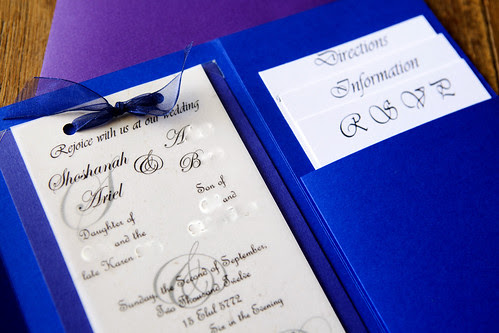 Rejoice with us at our wedding
Shoshanah
Ariel
&
A
B
Daughter of
and the
late Karen
Son of
Sunday, the Second of September,
Two Thousand Twelve
15 Elul 5772
Six in the Evening
Directions
Information
RSVP